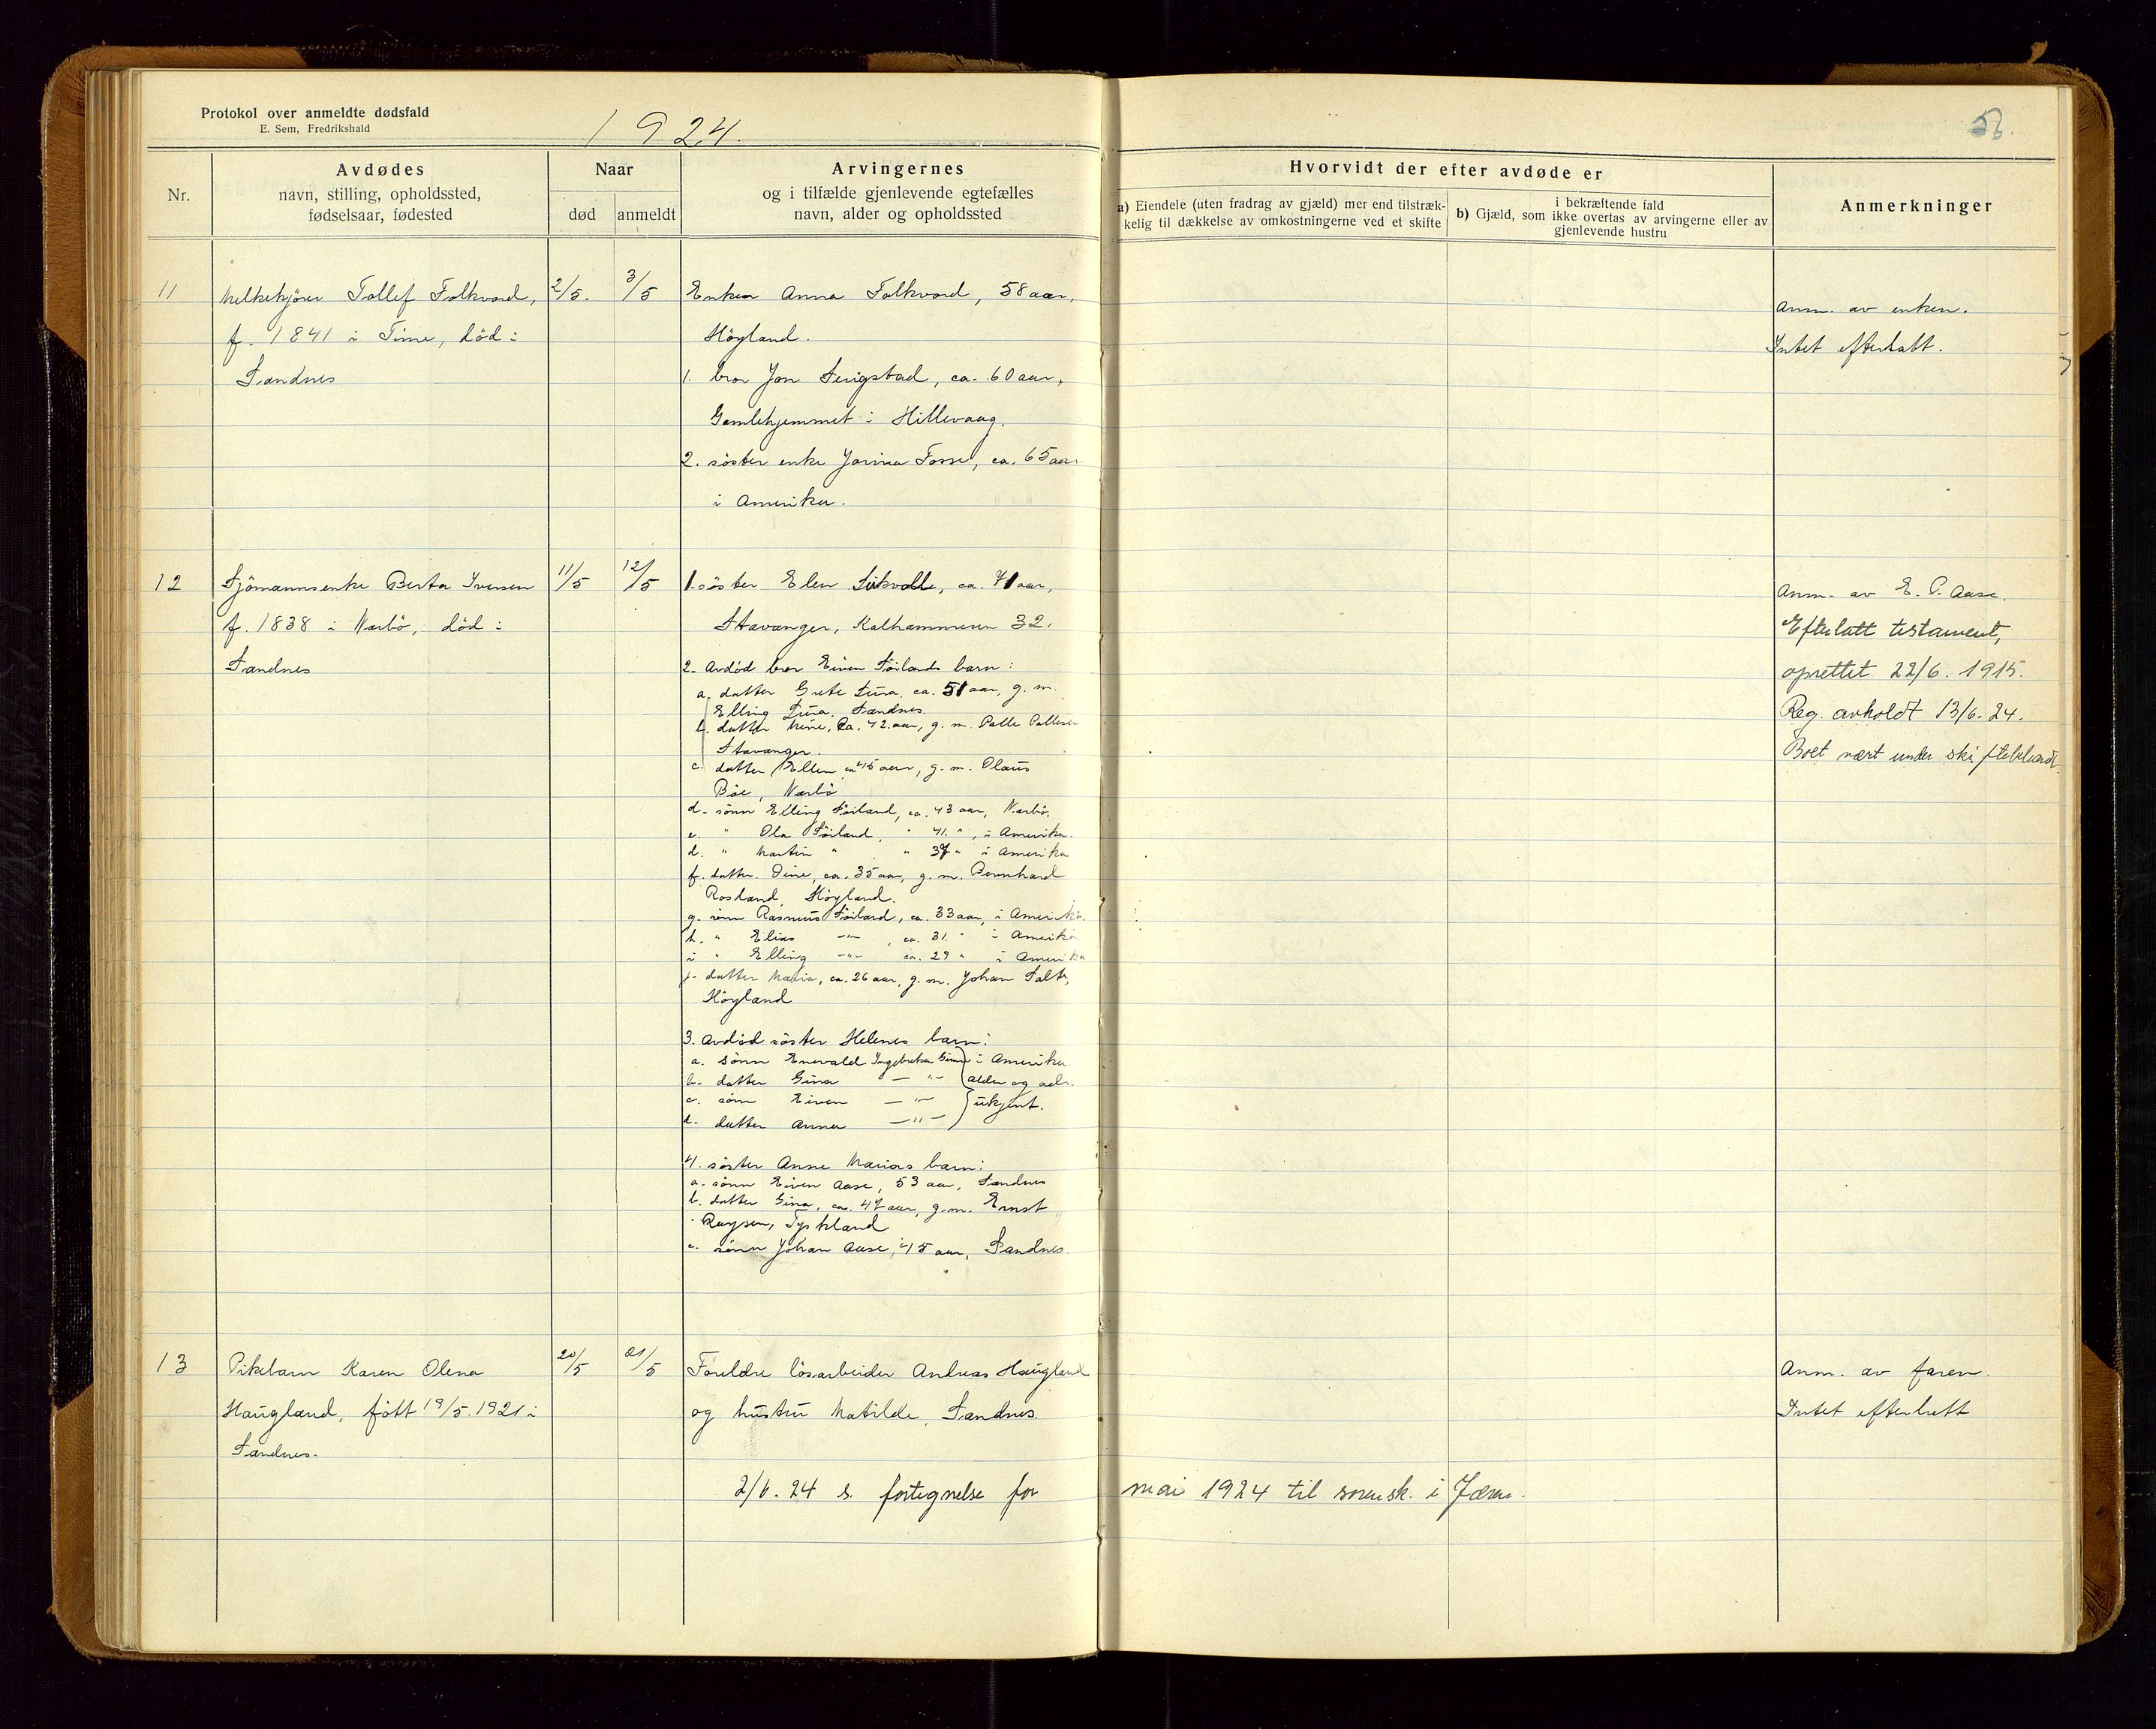 Protokol over anmeldte dødsfald
E. Sem, Fredrikshald
1924.
56.
Nr.
Avdødes
navn, stilling, opholdssted,
fødselsaar, fødested
Naar
død
anmeldt
Arvingernes
og i tilfælde gjenlevende egtefælles
navn, alder og opholdssted
Hvorvidt der efter avdøde er
a) Eiendele (uten fradrag av gjæld) mer end tilstræk-
kelig til dækkelse av omkostningerne ved et skifte
i bekræftende fald
b) Gjæld, som ikke overtas av arvingerne eller av
gjenlevende hustru
Anmerkninger
11
Melkekjører Tollef Folkvord,
f. 1841 i Time, död i
Sandnes
2/5.
3/5
Enken Anna Folkvord, 58 aar,
Höyland.
1. bror Jon Serigstad, ca. 60 aar,
Gamlehjemmet i Hillevaag.
2. söster enke Jorina Fosse, ca. 65 aar
i Amerika.
Anm. av enken.
Intet efterlatt.
12
Sjömannsenke Berta Iversen
f. 1838 i Narbö, död i
Sandnes
11/5
12/5
1. söster Elen, ca. 71 aar,
Stavanger, Kalhammeren 32.
2. Avdöd bror Eivin Söilands barn:
a. datter Grete Lura, ca. 51 aar, g. m.
Elling Lura, Sandnes.
b. datter Mine, ca. 42 aar, g. m. Palle Pallesen
Stavanger.
c. datter Ellen ca 45 aar, g. m. Olaus
Böe, Narbö
d. sönn Elling Söiland, ca. 43 aar, Narbö.
e. " Ola Söiland, " 41 ", i Amerika.
d. " Martin " " 37 " i Amerika
f. datter Dine, ca. 35 aar, g. m. Bernhard
Rosland, Höyland.
g. sönn Rasmus Söiland, ca. 33 aar, i Amerika.
h. " Elias —"— , ca. 31 " i Amerika
i " Elling —"— ca. 29 " i Amerika
j. datter Maria, ca. 26 aar, g. m. Johan Salte,
Höyland
3. Avdöd söster Helenes barn:
a. sönn Enevald Ingebretsen i Amerika
b. datter Gina — " — alder og adr.
c. sönn Eivin — " — ukjent.
d. datter Anna — " —
4. söster Anne Marias barn:
a. sönn Eivin Aase, 53 aar, Sandnes
b. datter Gina, ca. 47 aar, g. m. Ernst
Ruysen, Tyskland
c. sönn Johan Aase, 45 aar, Sandnes.
Anm. av E. P. Aase.
Efterlatt testament,
oprettet 22/6. 1915.
Reg. avholdt 13/6. 24.
Boet vært under skiftebehandl.
13
Pikebarn Karen Olena
Haugland, född 19/5. 1921 i
Sandnes.
20/5
21/5
Foreldre lösarbeider Andreas Haugland
og hustru Matilde, Sandnes.
Anm. av faren.
Intet efterlatt
2/6. 24 s. fortegnelse for mai 1924 til sorensk. i Jæren.